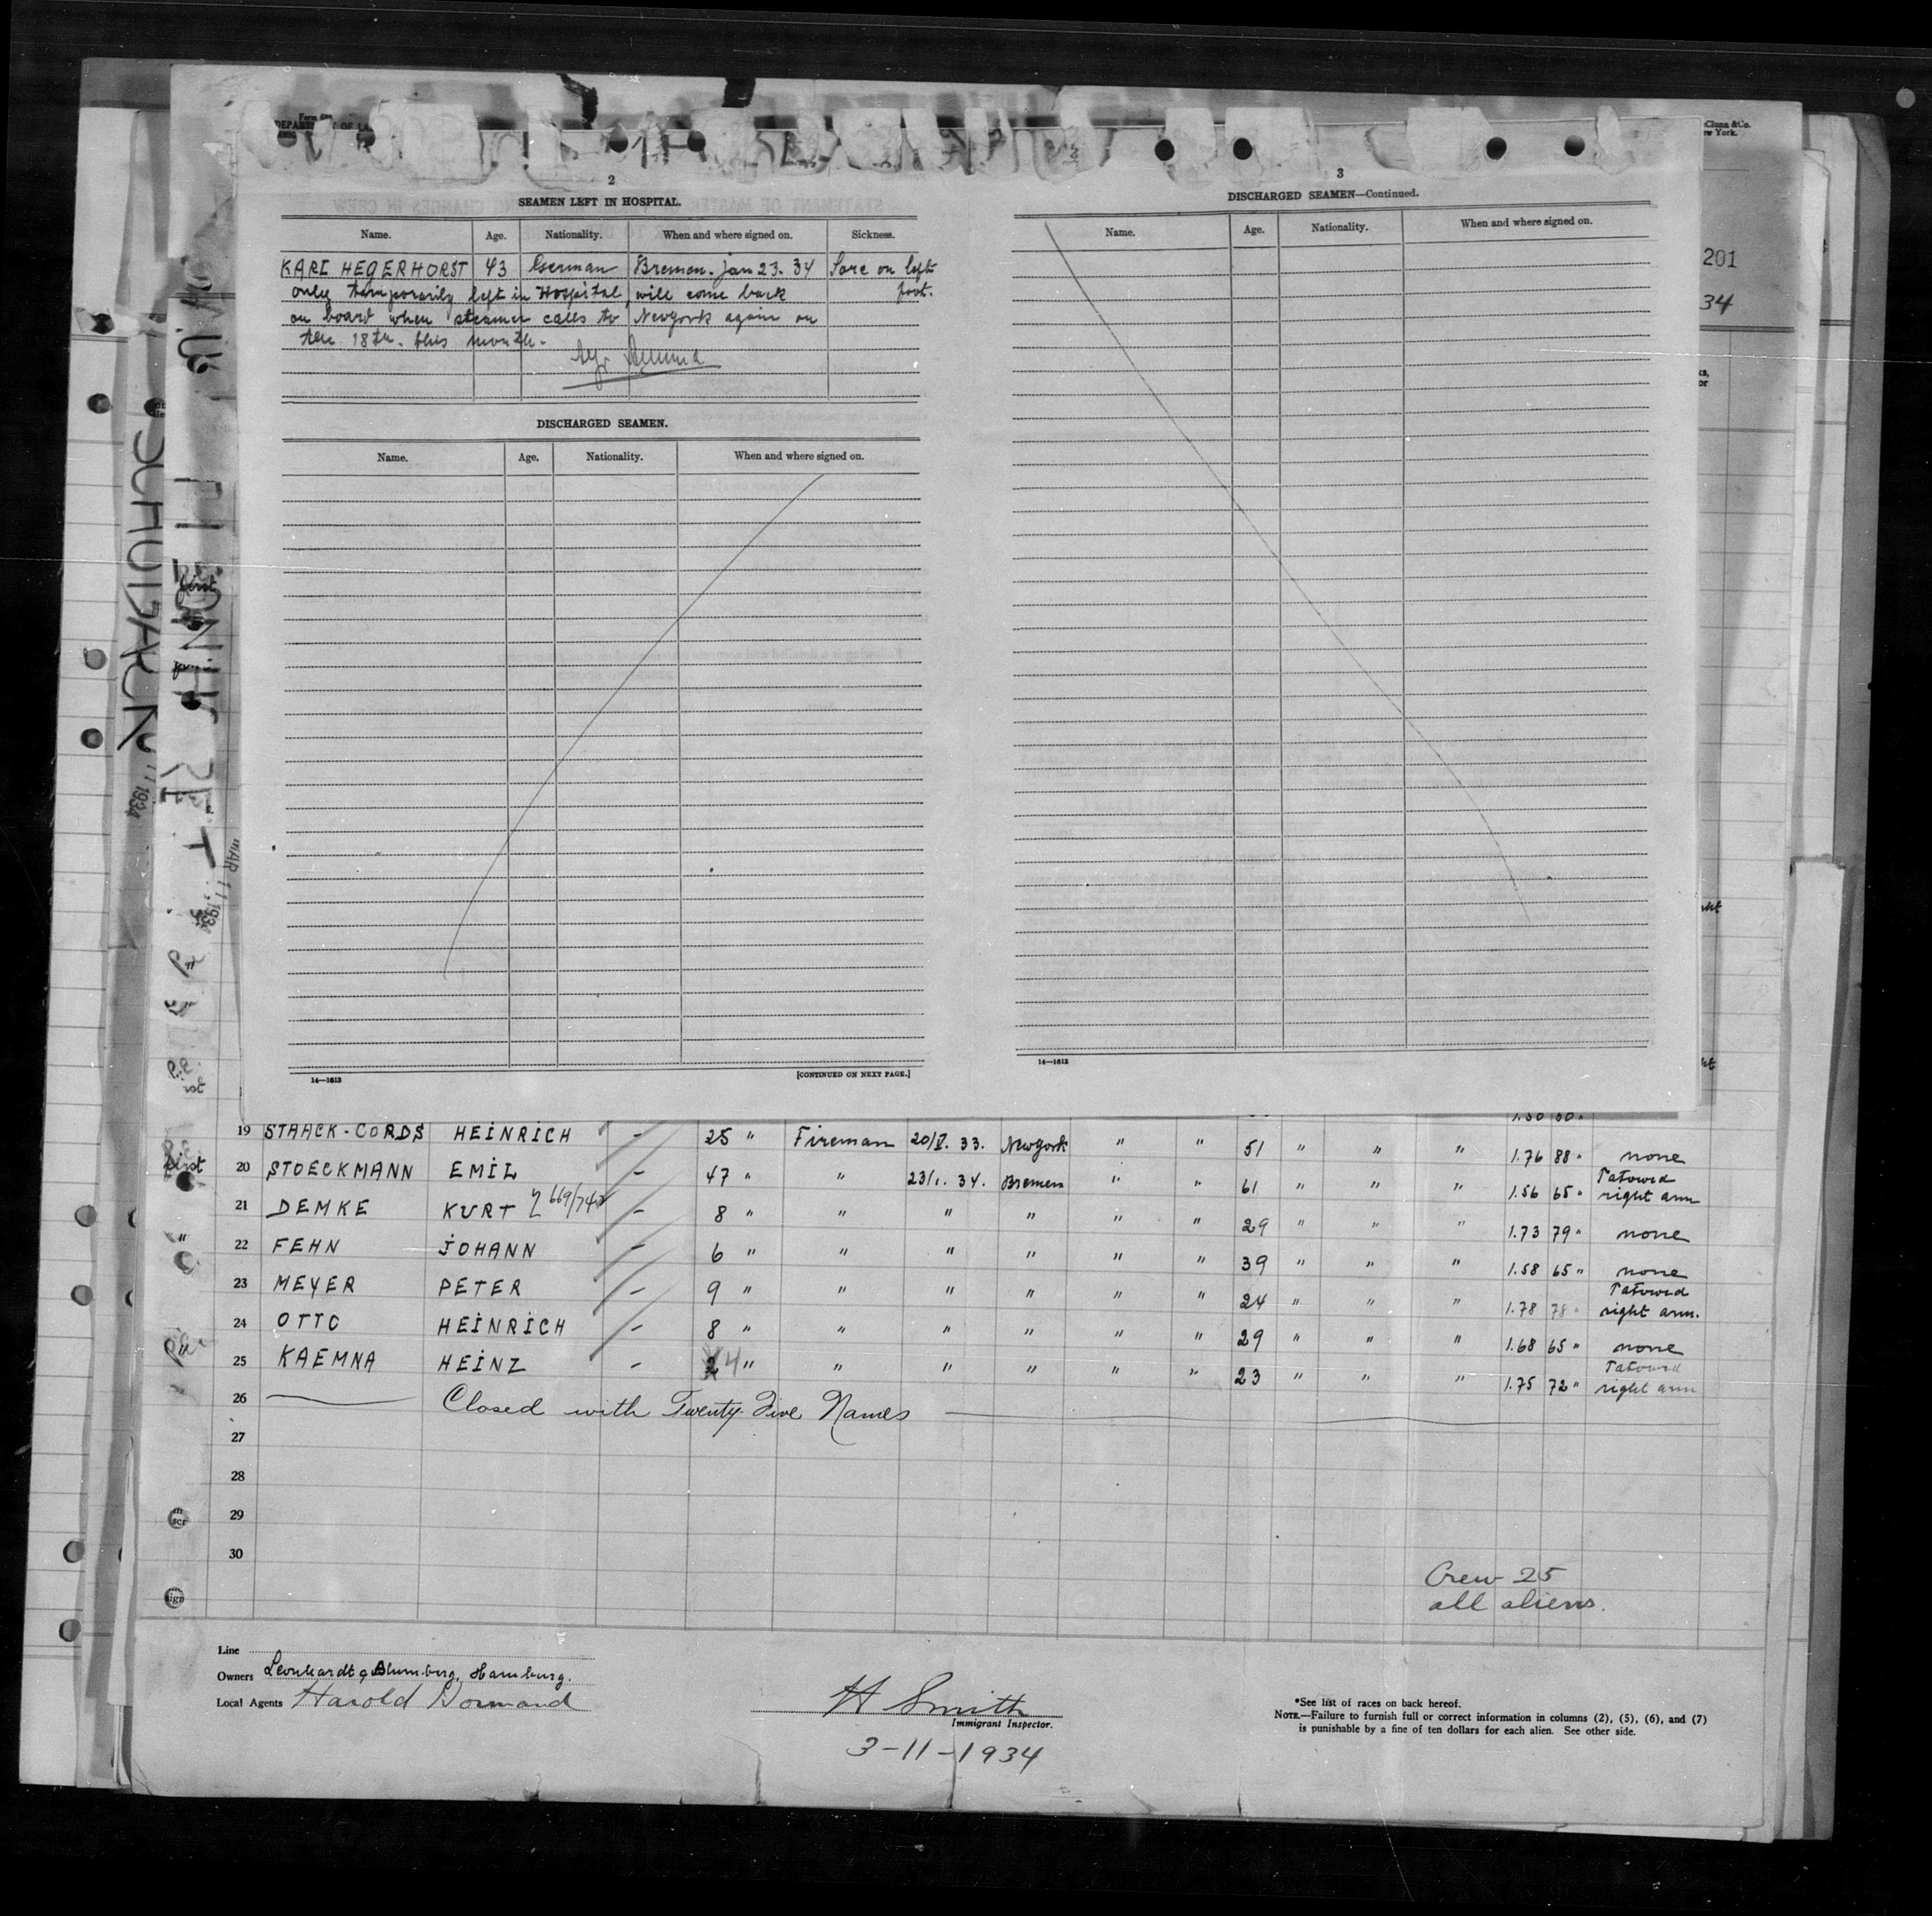 2
SEAMEN LEFT IN HOSPITAL.
Name. Age. Nationality. When and where signed on. Sickness.
KARL HEGERHORST 43 German Bremen. Jan 23. 34 Sore on left foot.
only temporarily left in Hospital, will come back
on board when steamer calls to Newyork again on
the 18th. this month.
DISCHARGED SEAMEN.
Name. Age. Nationality. When and where signed on.
14—1613 [CONTINUED ON NEXT PAGE.]
3
DISCHARGED SEAMEN—Continued.
Name. Age. Nationality. When and where signed on.
14—1613
201
34
SCHODACK
MAR 11 1934
19 STAACK-CORDS HEINRICH - 25 " Fireman 20/V. 33. Newyork " " 51 " " " 1.76 88 " none
20 STOECKMANN EMIL - 47 " " 23/1. 34. Bremen " " 61 " " " 1.56 65 " Tatowed right arm
21 DEMKE KURT 669/742 - 8 " " " " " " 29 " " " 1.73 79 " none
22 FEHN JOHANN - 6 " " " " " " 39 " " " 1.58 65 " none
23 MEYER PETER - 9 " " " " " " 24 " " " 1.78 78 " Tatowed right arm.
24 OTTO HEINRICH - 8 " " " " " " 29 " " " 1.68 65 " none
25 KAEMNA HEINZ - 4 " " " " " " 23 " " " 1.75 72 " Tatowed right arm
26 Closed with Twenty Five Names
27
28
29
30
Crew 25
all aliens.
Line
Owners Leonhardt & Blumberg, Hamburg.
Local Agents Harold Dormand
H Smith
Immigrant Inspector.
3-11-1934
*See list of races on back hereof.
NOTE.—Failure to furnish full or correct information in columns (2), (5), (6), and (7)
is punishable by a fine of ten dollars for each alien. See other side.